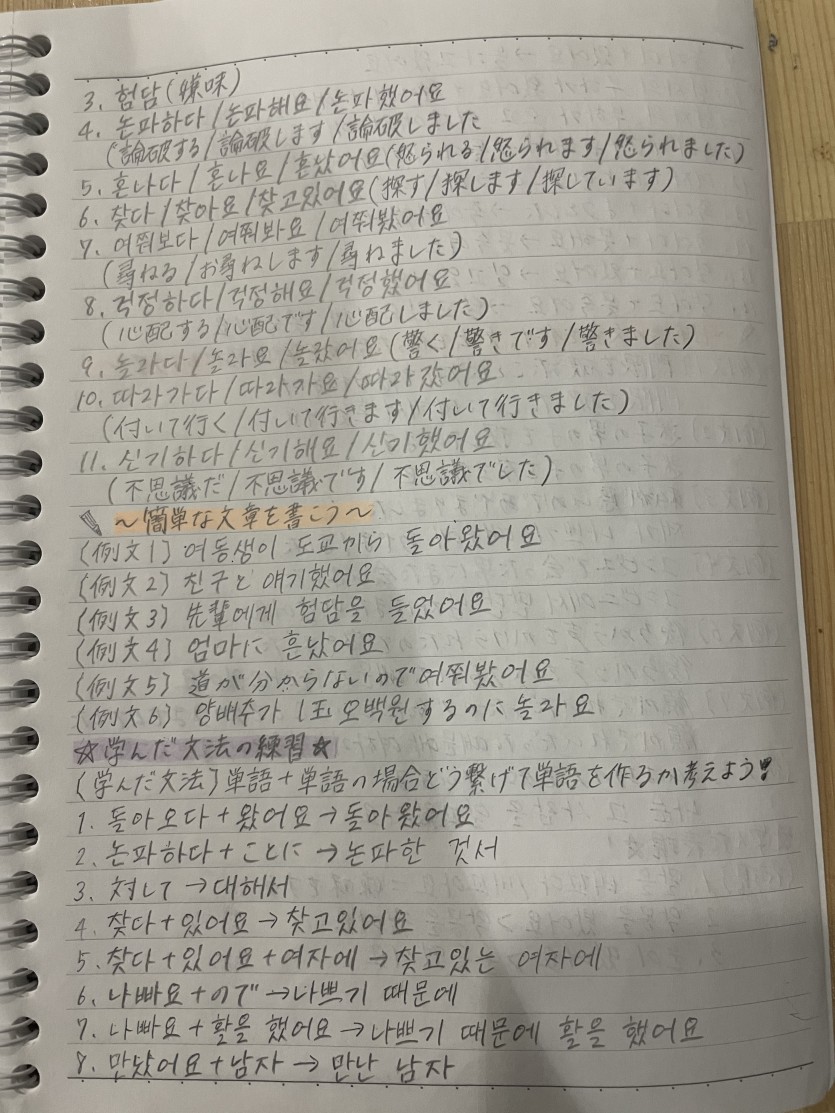 3. 험담(嫌味)
4. 논파하다/논파해요/논파했어요
(論破する/論破します/論破しました
5. 혼나다/혼나요/혼났어요(怒られる/怒られます/怒られました)
6. 찾다/찾아요/찾고있어요(探す/探します/探しています)
7. 여쭤보다/여쭤봐요/여쭤봤어요
(尋ねる/お尋ねします/尋ねました)
8. 걱정하다/걱정해요/걱정했어요
(心配する/心配です/心配しました)
9. 놀라다/놀라요/놀랐어요(驚く/驚きです/驚きました)
10. 따라가다/따라가요/따라갔어요
(付いて行く/付いて行きます/付いて行きました)
11. 신기하다/신기해요/신기했어요
(不思議だ/不思議です/不思議でした)
〜簡単な文章を書こう〜
(例文1) 여동생이 도쿄から 돌아왔어요
(例文2) 친구と 얘기했어요
(例文3) 先輩에게 험담을 들었어요
(例文4) 엄마に 혼났어요
(例文5) 道が分からないので여쭤봤어요
(例文6) 양배추가 1玉오백원するのに놀라요
☆学んだ文法の練習☆
(学んだ文法)単語+単語の場合どう繋げて単語を作るか考えよう!
1. 돌아오다+왔어요→돌아왔어요
2. 논파하다+ことに→논파한 것서
3. 対して→대해서
4. 찾다+있어요→찾고있어요
5. 찾다+있어요+여자에→찾고있는 여자에
6. 나빠요+ので→나쁘기 때문에
7. 나빠요+활을 했어요→나쁘기 때문에 활을 했어요
8. 만났어요+남자→만난 남자